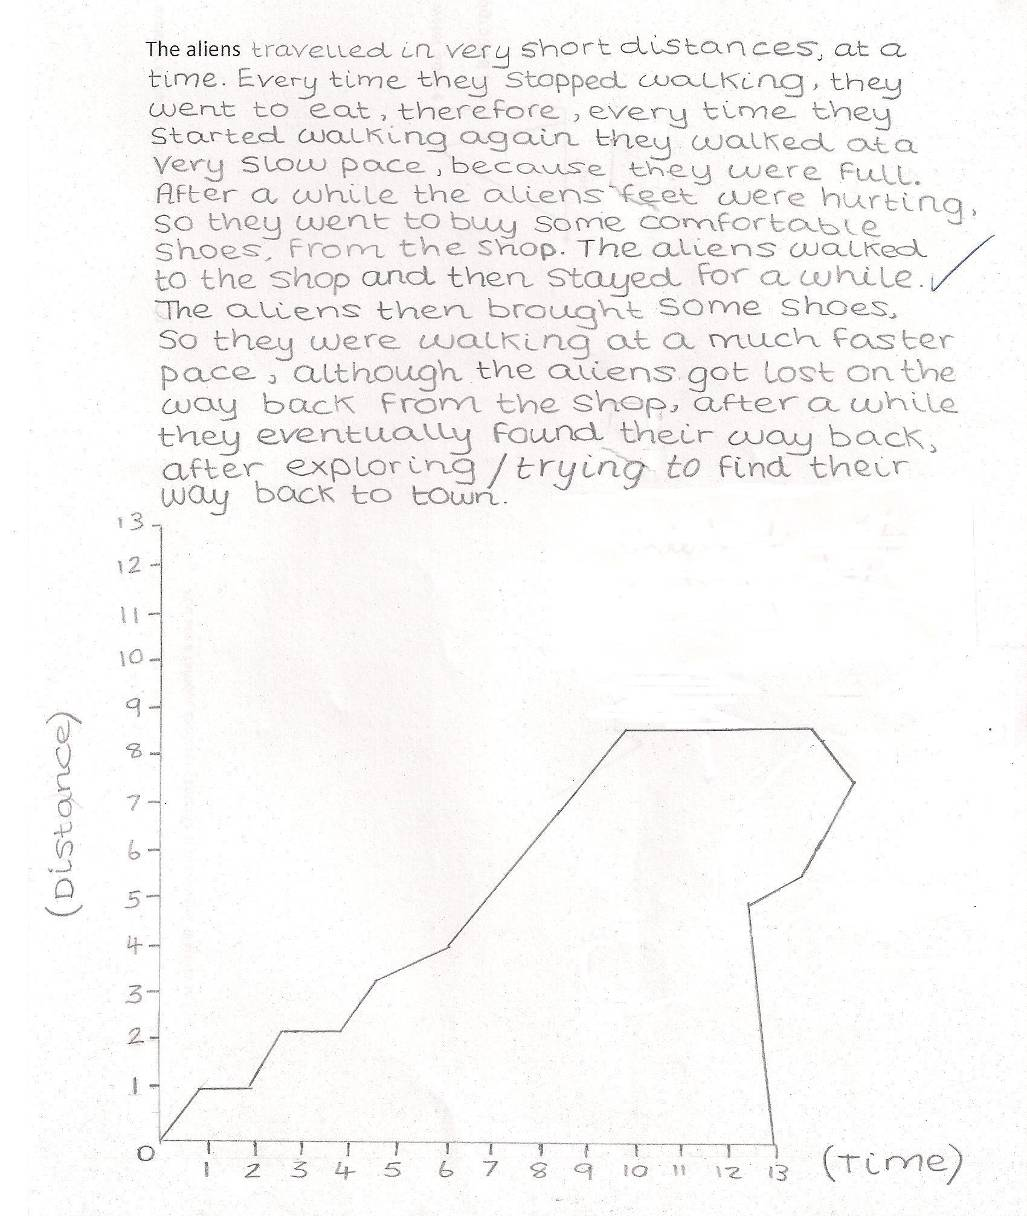 The aliens travelled in very short distances, at a
time. Every time they stopped walking, they
went to eat, therefore, every time they
started walking again they walked at a
very slow pace, because they were full.
After a while the aliens feet were hurting,
so they went to buy some comfortable
shoes, from the shop. The aliens walked
to the shop and then stayed for a while.
The aliens then brought some shoes,
So they were walking at a much faster
pace, although the aliens got lost on the
way back from the shop, after a while
they eventually found their way back,
after exploring/trying to find their
way back to town.
13
12
11
10
9
8
7
6
5
4
3
2
1
0
(Distance)
1 2 3 4 5 6 7 8 9 10 11 12 13 (Time)